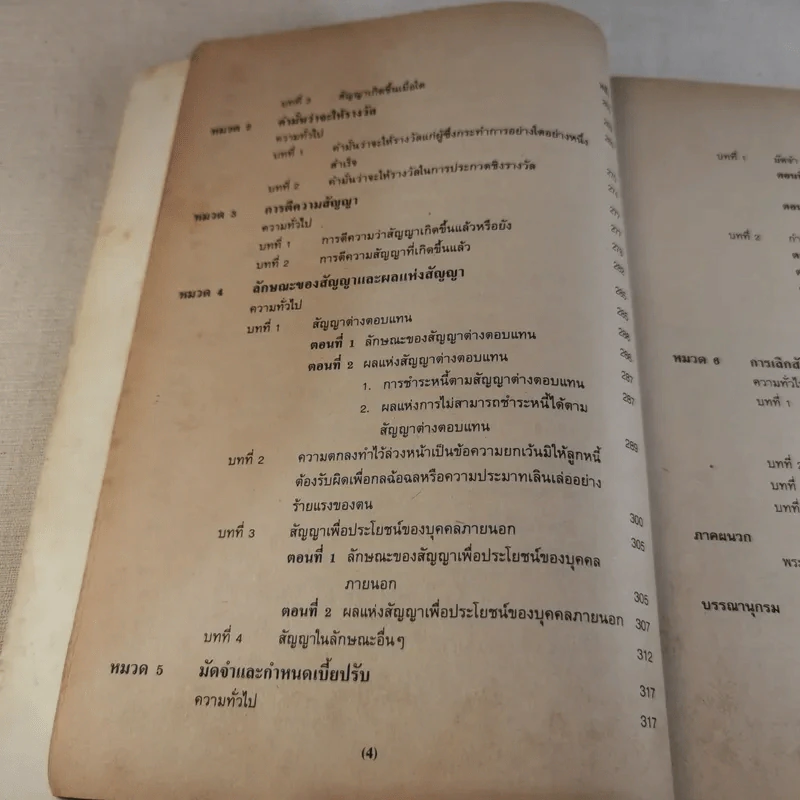 บทที่ 3 สัญญาเกิดขึ้นเมื่อใด
หมวด 2 คำมั่นว่าจะให้รางวัล
ความทั่วไป
บทที่ 1 คำมั่นว่าจะให้รางวัลแก่ผู้ซึ่งกระทำการอย่างใดอย่างหนึ่ง
สำเร็จ
บทที่ 2 คำมั่นว่าจะให้รางวัลในการประกวดชิงรางวัล
หมวด 3 การตีความสัญญา
ความทั่วไป
บทที่ 1 การตีความว่าสัญญาเกิดขึ้นแล้วหรือยัง
บทที่ 2 การตีความสัญญาที่เกิดขึ้นแล้ว
หมวด 4 ลักษณะของสัญญาและผลแห่งสัญญา
ความทั่วไป 285
บทที่ 1 สัญญาต่างตอบแทน 285
ตอนที่ 1 ลักษณะของสัญญาต่างตอบแทน 286
ตอนที่ 2 ผลแห่งสัญญาต่างตอบแทน 286
1. การชำระหนี้ตามสัญญาต่างตอบแทน 287
2. ผลแห่งการไม่สามารถชำระหนี้ได้ตาม 287
สัญญาต่างตอบแทน
289
บทที่ 2 ความตกลงทำไว้ล่วงหน้าเป็นข้อความยกเว้นมิให้ลูกหนี้
ต้องรับผิดเพื่อกลฉ้อฉลหรือความประมาทเลินเล่ออย่าง
ร้ายแรงของตน 300
บทที่ 3 สัญญาเพื่อประโยชน์ของบุคคลภายนอก 305
ตอนที่ 1 ลักษณะของสัญญาเพื่อประโยชน์ของบุคคล
ภายนอก 305
ตอนที่ 2 ผลแห่งสัญญาเพื่อประโยชน์ของบุคคลภายนอก 307
บทที่ 4 สัญญาในลักษณะอื่นๆ 312
หมวด 5 มัดจำและกำหนดเบี้ยปรับ 317
ความทั่วไป 317
(4)
บทที่ 1 มัดจำ
บทที่ 2
หมวด 6 การเลิกสั
ความทั่วไ
บทที่ 1
บทที่ 2
บทที่
บทที่
ภาคผนวก
พระ
บรรณานุกรม